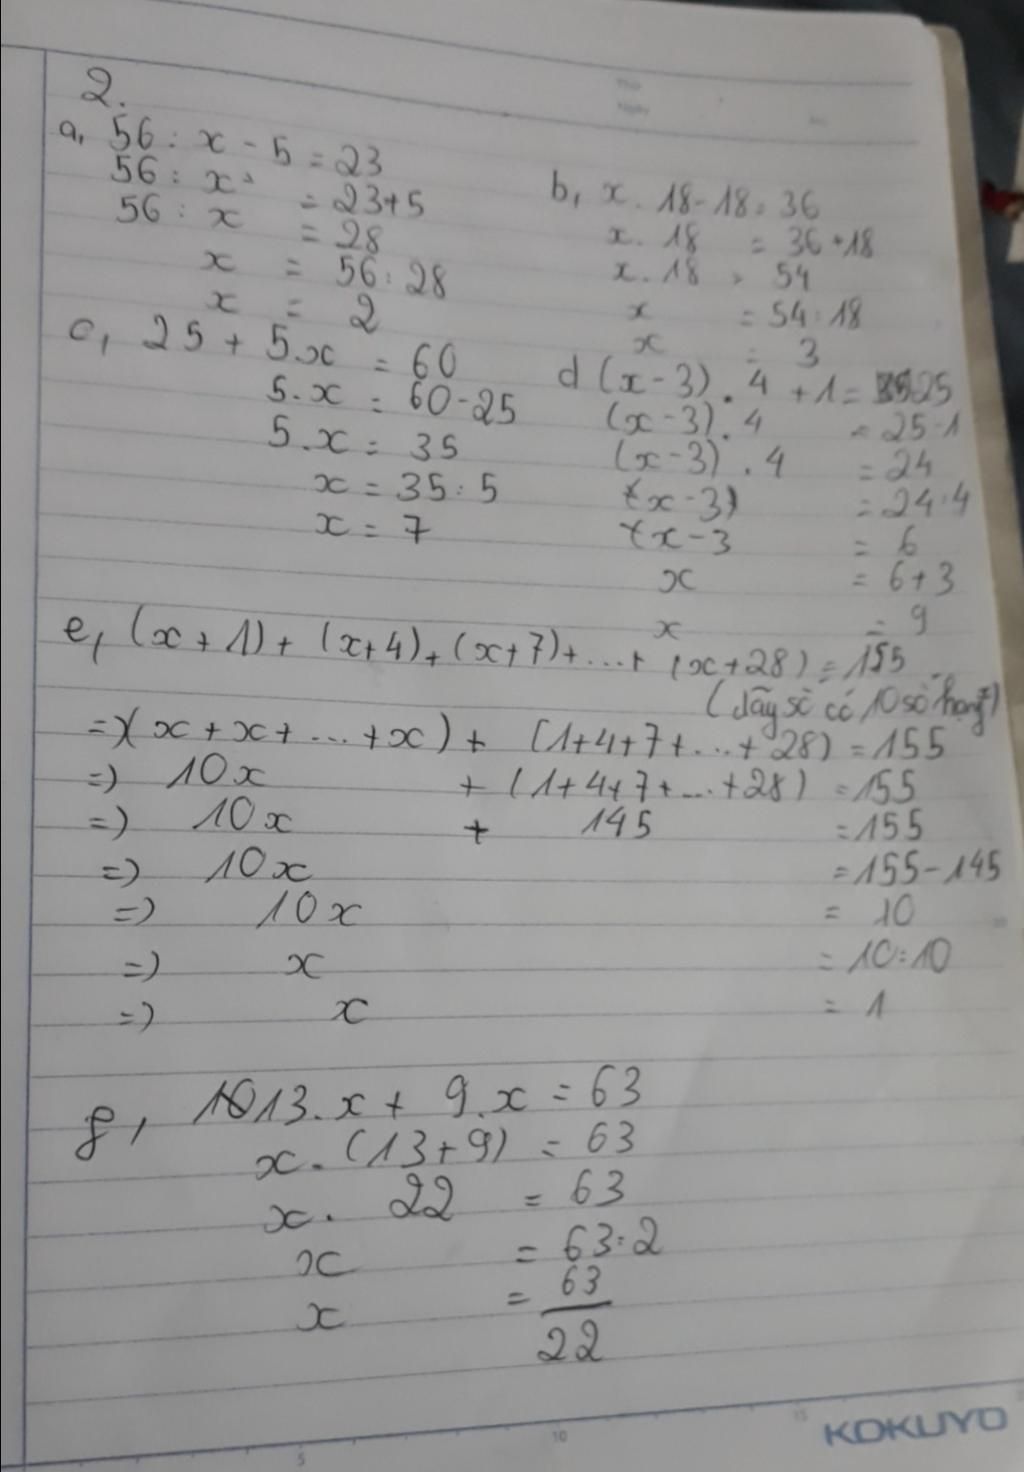 2.
a, 56 : x - 5 = 23
56 : x = 23+5
56 : x = 28
x = 56 : 28
x = 2
b, x . 18 - 18 = 36
x . 18 = 36 + 18
x . 18 = 54
x = 54 : 18
x = 3
c, 25 + 5.x = 60
5.x = 60-25
5.x = 35
x = 35 : 5
x = 7
d (x-3) . 4 + 1 = 25
(x-3) . 4 = 25-1
(x-3) . 4 = 24
(x-3) = 24:4
x-3 = 6
x = 6+3
x = 9
e, (x+1) + (x+4) + (x+7) + ... + (x+28) = 155
(dãy số có 10 số hạng)
=> (x + x + ... + x) + (1+4+7+...+28) = 155
=> 10x + (1+4+7+...+28) = 155
=> 10x + 145 = 155
=> 10x = 155-145
=> 10x = 10
=> x = 10:10
=> x = 1
f, 13.x + 9.x = 63
x . (13+9) = 63
x . 22 = 63
x = 63:2
x = 63/22
5 10 15
KOKUYO